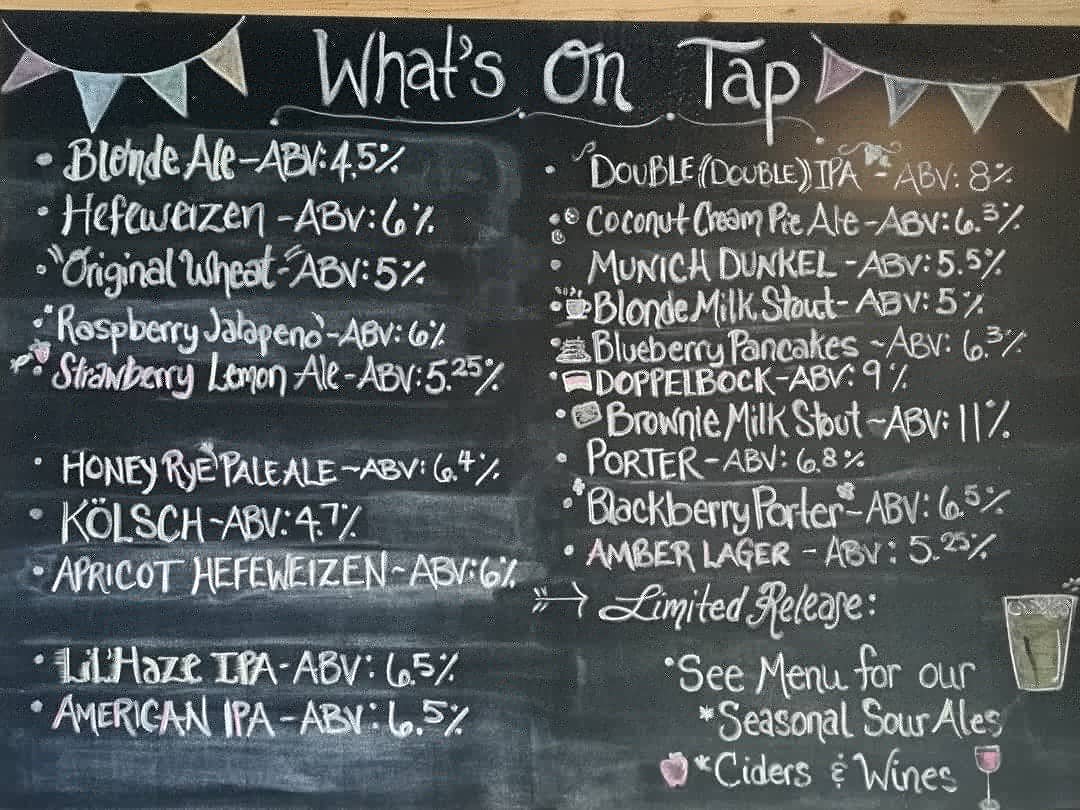 What's On Tap
• Blonde Ale - ABV: 4.5%
• Hefeweizen - ABV: 6%
• "Original Wheat" - ABV: 5%
• "Raspberry Jalapeno" - ABV: 6%
• Strawberry Lemon Ale - ABV: 5.25%
• HONEY RYE PALE ALE ~ ABV: 6.4%
• KÖLSCH - ABV: 4.7%
• APRICOT HEFEWEIZEN ~ ABV: 6%
• Lil' Haze IPA - ABV: 6.5%
• AMERICAN IPA - ABV: 6.5%
• DOUBLE (DOUBLE) IPA - ABV: 8%
• Coconut Cream Pie Ale - ABV: 6.3%
• MUNICH DUNKEL - ABV: 5.5%
• Blonde Milk Stout - ABV: 5%
• Blueberry Pancakes ~ ABV: 6.3%
• DOPPELBOCK - ABV: 9%
• Brownie Milk Stout ~ ABV: 11%
• PORTER - ABV: 6.8%
• Blackberry Porter - ABV: 6.5%
• AMBER LAGER - ABV: 5.25%
Limited Release:
• See Menu for our
* Seasonal Sour Ales
* Ciders & Wines